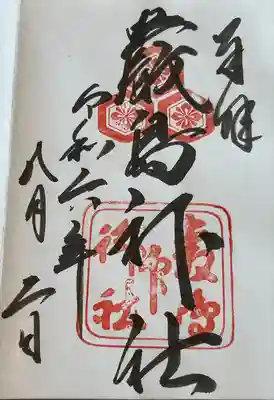 奉拝
厳島神社
令和六年
八月二日
嚴島神社